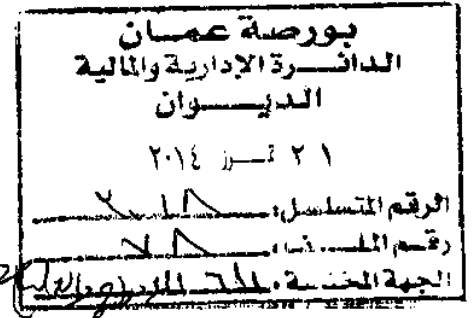 بورصة عمان
الدائرة الإدارية والمالية
الديوان
٢١ تموز ٢٠١٤
الرقم المتسلسل:
رقم الملف:
الجهة المختصة: